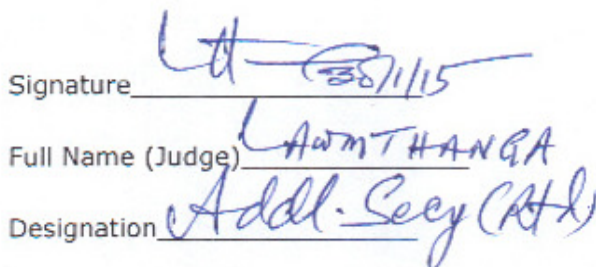 Signature 30/1/15
Full Name (Judge) LAWMTHANGA
Designation Addl. Secy (Rtd)